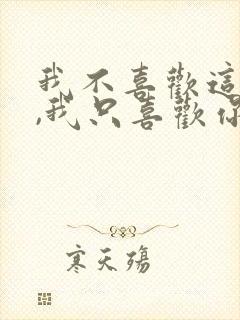 我不喜歡這
,我只喜歡你
寒天殤